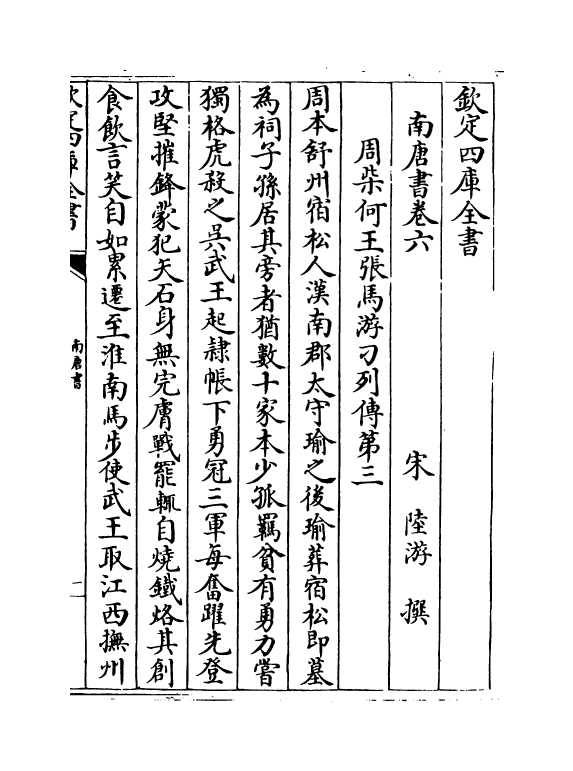 欽定四庫全書
南唐書卷六
宋 陸游 撰
周柴何王張馬游刁列傳第三
周本舒州宿松人漢南郡太守瑜之後瑜葬宿松即墓
為祠子孫居其旁者猶數十家本少孤羈貧有勇力嘗
獨格虎殺之吳武王起隷帳下勇冠三軍每奮躍先登
攻堅摧鋒蒙犯矢石身無完膚戰罷輒自燒鐵烙其創
食飲言笑自如累遷至淮南馬步使武王取江西撫州
欽定四庫全書
南唐書